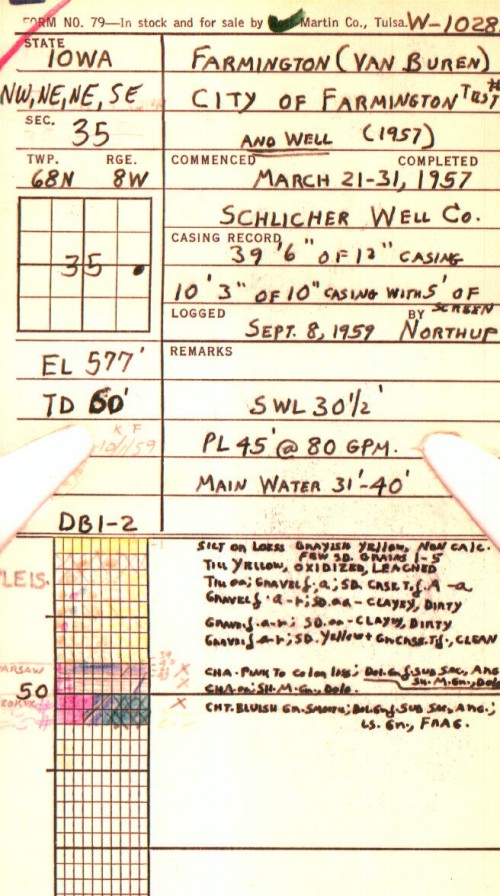 FORM NO. 79—In stock and for sale by Martin Co., Tulsa. W-1028
STATE
IOWA
FARMINGTON (VAN BUREN)
NW, NE, NE, SE
CITY OF FARMINGTON TEST #
SEC.
35
AND WELL (1957)
TWP. RGE.
68N 8W
COMMENCED COMPLETED
MARCH 21-31, 1957
SCHLICHER WELL CO.
CASING RECORD
39'6" OF 12" CASING
10'3" OF 10" CASING WITH 5' OF SCREEN
35
LOGGED BY
SEPT. 8, 1959 NORTHUP
EL 577'
REMARKS
TD 60'
SWL 30 1/2'
KF
10/1/59
PL 45' @ 80 GPM.
MAIN WATER 31'-40'
DB1-2
SILT OR LOESS GRAYISH YELLOW, NON CALC.
FEW SD. GRAINS 1-5
TILL YELLOW, OXIDIZED, LEACHED
PLEIS.
SD.aa - CLAYEY, DIRTY
SD.aa - CLAYEY, DIRTY
CLEAN
WARSAW
CHA-PINK TO COLORLESS;
SH. M.Gn., Dolo
50
CHA-aa; SH. M.Gn., Dolo.
CHT. BLUISH Gn. SMOOTH;
LS. Gn., FRAG.